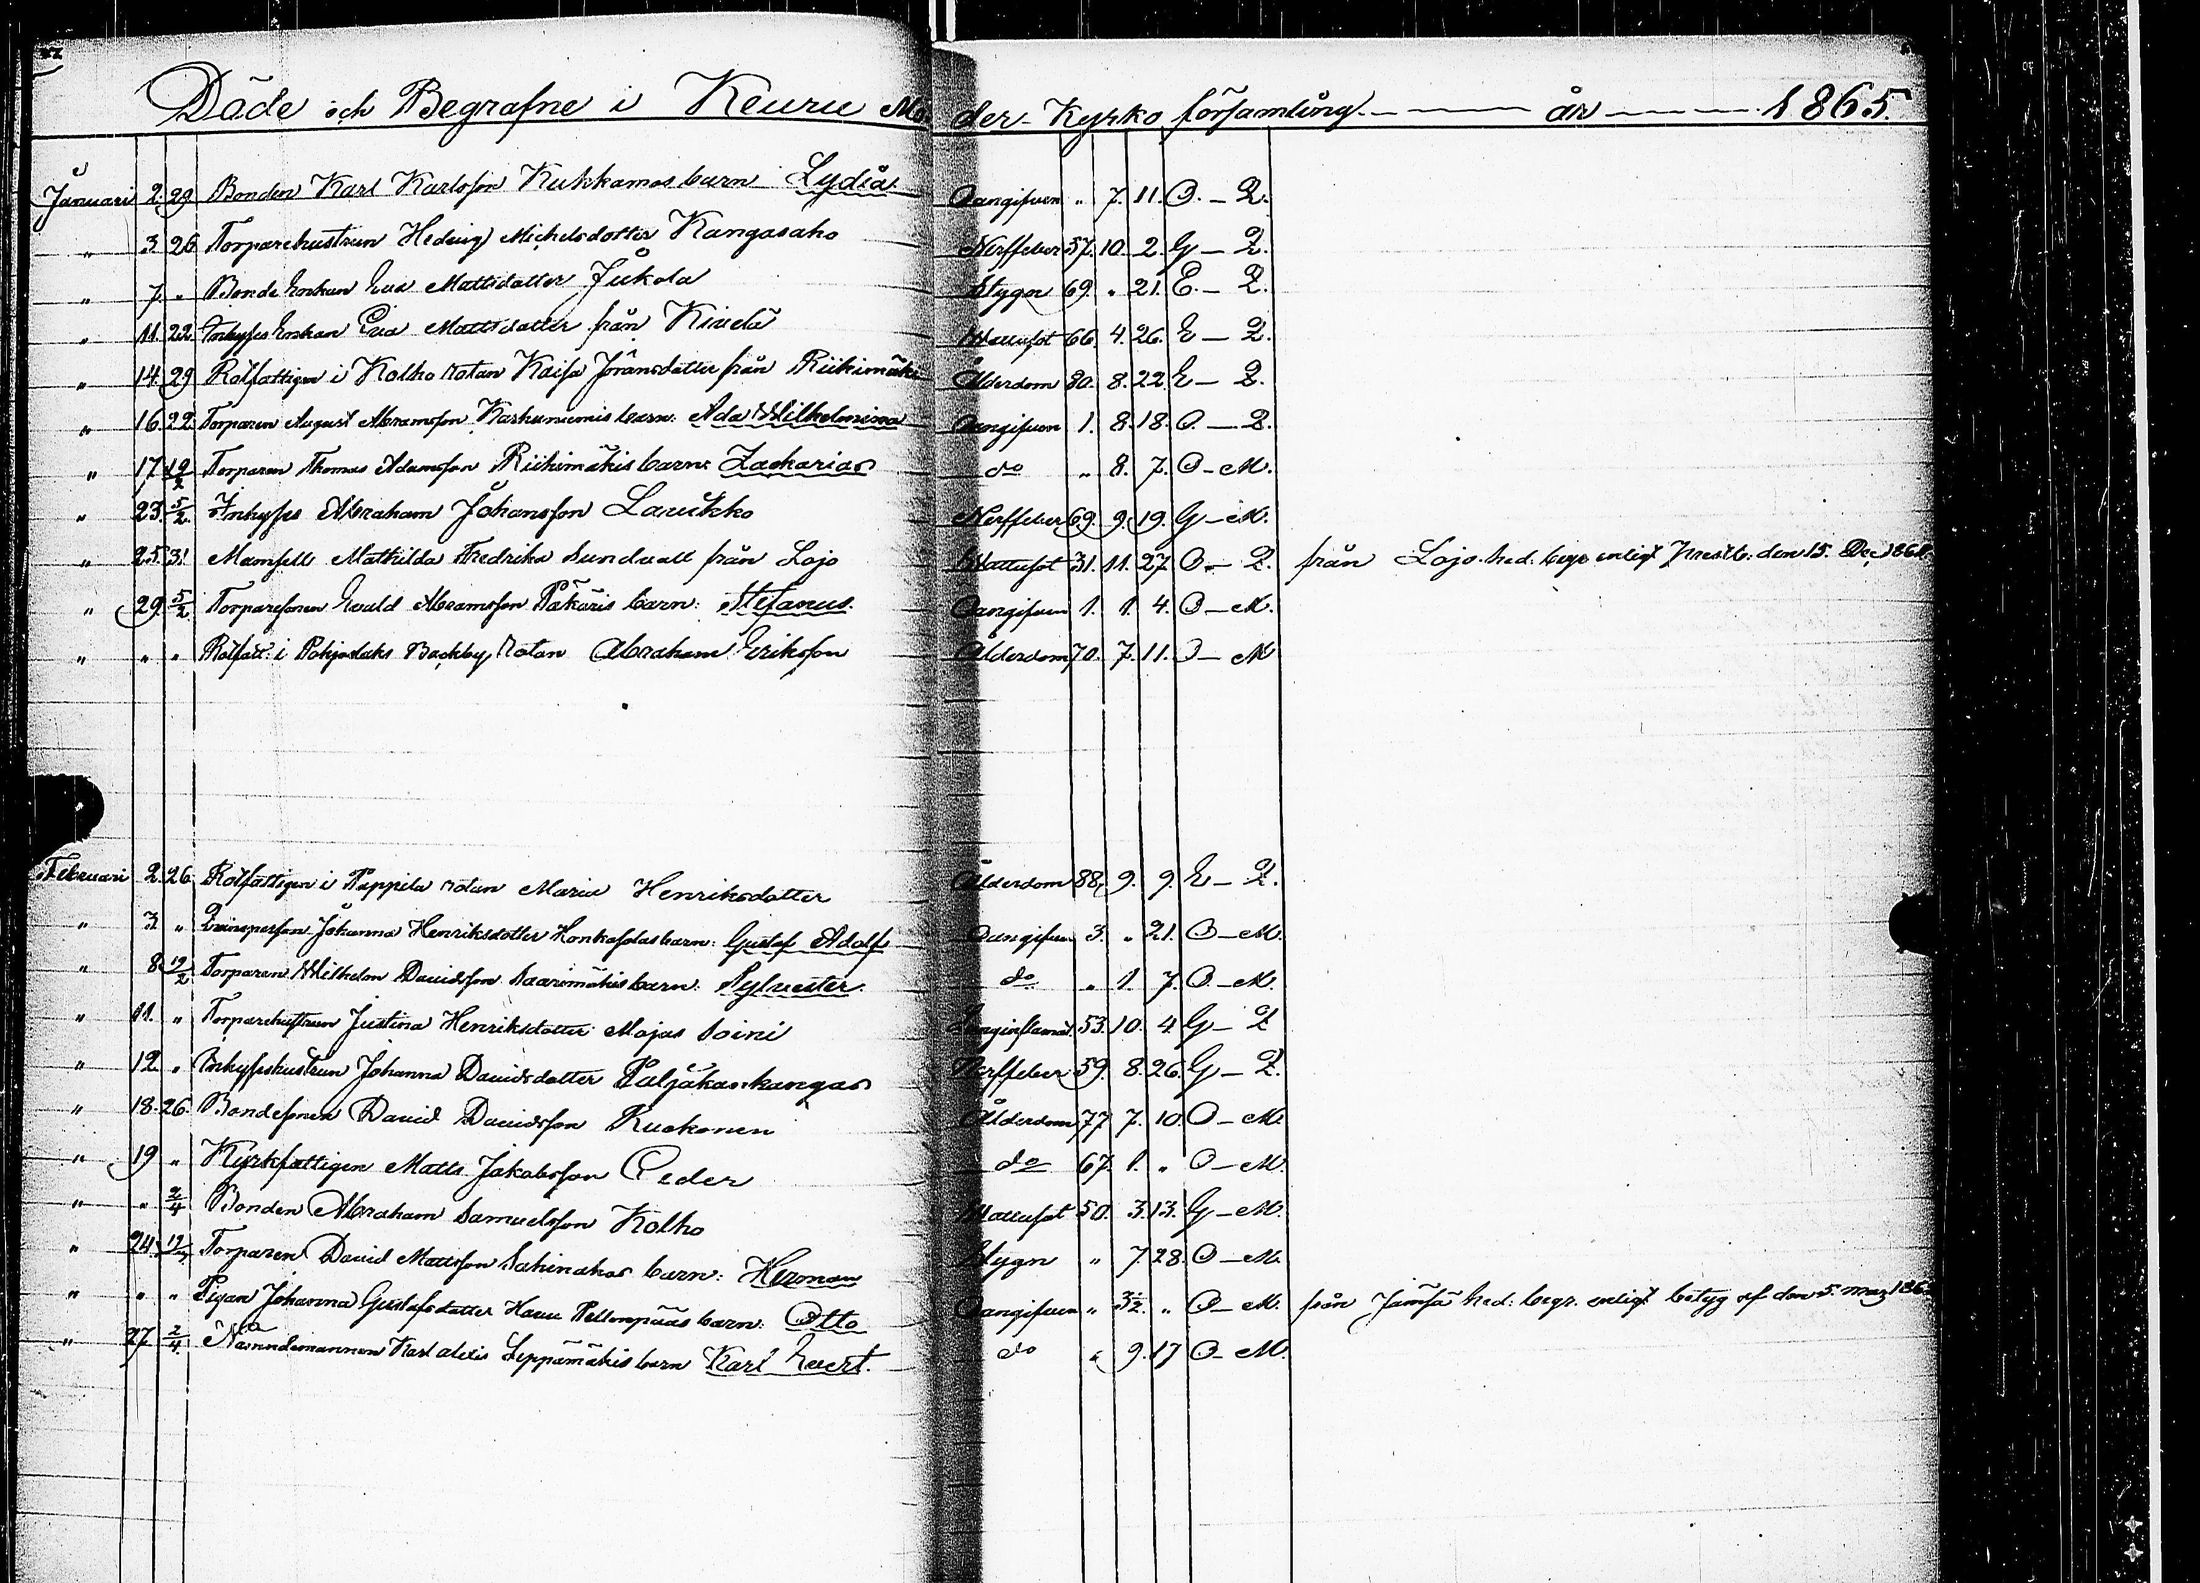 Döde och Begrafne i Keuru Moder-Kyrko församling. år 1865.
Januari 2. 29 Bonden Karl Karlsson Kukkamas barn Lydia. Oangifven " 7. 11. O. - Q.
" 3. 26 Torparehustrun Hedvig Michelsdotter Kangasaho Nerffeber 57. 10. 2. G - Q.
" 7. " Bonde Enkan Eva Mattsdotter Jukola Stygn 69. " 21. E. - Q.
" 11. 22. Inhyses Enkan Eva Mattsdotter från Kivelä Wattusot 66. 4. 26. E - Q.
" 14. 29 Rotfattigen i Kolho rotan Kaisa Jöransdotter från Riihimäki Ålderdom 80. 8. 22. E - Q.
" 16. 22. Torparen August Abramsson Karhuniemis barn: Ada Wilhelmina Oangifven 1. 8. 18. O. - Q.
" 17. 19/2 Torparen Thomas Adamsson Riihimäkis barn: Zacharias do " 8. 7. O - M.
" 23. 5/2. Inhyses Abraham Johansson Laurikko Nerffeber 69. 9. 19. G - M.
" 25. 31. Mamsell Mathilda Fredrika Sundvall från Lojo Wattusot 31. 11. 27. O. - Q. från Lojo hed. begr. enligt Prestb: den 15. Dec 1864.
" 29. 5/2 Torparesonen Evald Abramsson Pakaris barn: Stefanus. Oangifven 1. 1. 4. O - M.
" " " Rotfatt: i Pohjoslaks Backby rotan Abraham Eriksson Ålderdom 70. 7. 11. O - M
Februari 2. 26 Rotfattigen i Pappila rotan Maria Henriksdotter Ålderdom 88. 9. 9. E - Q.
" 3. " Qvinsperson Johanna Henriksdotter Honkasalos barn: Gustaf Adolf Oangifven 3. " 21. O - M.
" 8. 19/2 Torparen Wilhelm Davidsson Saarimäkis barn: Sylvester. do " 1. 7. O - M.
" 11. " Torparehustrun Justina Henriksdotter Majas Soini Lunginflamat. 53. 10. 4. G - Q
" 12. " Inhyseshustrun Johanna Davidsdotter Paljakankangas Nerffeber 59. 8. 26. G - Q.
" 18. 26. Bondesonen David Davidsson Ruokonen Ålderdom 77 7. 10. O - M.
" 19 " Kyrkfattigen Matts Jakobsson Ceder do 67. 1. " O - M.
" " 2/4 Bonden Abraham Samuelsson Kolho Wattusot 50. 3. 13. G - M.
" 24. Torparen David Mattsson barn: Herman Stygn " 7. 28. O - M.
" " " Pigan Johanna Gustafsdotter barn: Otto Oangifven " 3½ " O - M. från Jämsä hed: begr. enligt betyg af den 5. maj
" 27 2/4 Nämndemannen Karl Alexis Leppämäkis barn Karl Evert. do " 9. 17 O - M.